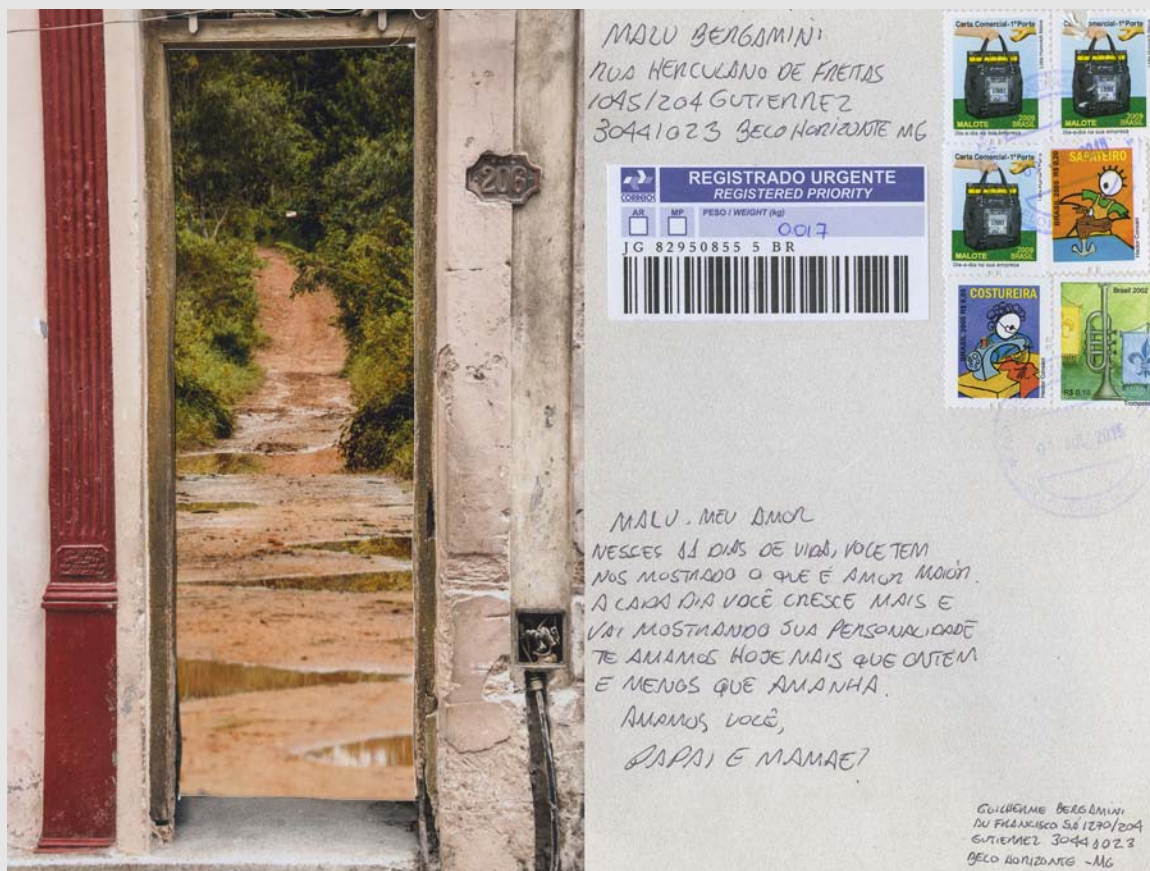 206
MALU BERGAMINI
RUA HERCULANO DE FREITAS
1045/204 GUTIERREZ
30441023 BELO HORIZONTE MG
CORREIOS
REGISTRADO URGENTE
REGISTERED PRIORITY
AR MP PESO / WEIGHT (kg)
0017
JG 82950855 5 BR
Carta Comercial-1º Porte
MALOTE 2009 BRASIL
Dia-a-dia na sua empresa
Carta Comercial-1º Porte
MALOTE 2009 BRASIL
Dia-a-dia na sua empresa
Carta Comercial-1º Porte
MALOTE 2009 BRASIL
Dia-a-dia na sua empresa
SAPATEIRO
COSTUREIRA
Brasil 2002
R$ 0,10
MALU, MEU AMOR
NESSES 11 DIAS DE VIDA, VOCE TEM
NOS MOSTRADO O QUE É AMOR MAIOR.
A CADA DIA VOCÊ CRESCE MAIS E
VAI MOSTRANDO SUA PERSONALIDADE
TE AMAMOS HOJE MAIS QUE ONTEM
E MENOS QUE AMANHA.
AMAMOS VOCÊ,
PAPAI E MAMAE
GUILHERME BERGAMINI
AV FRANCISCO SÁ 1270/204
GUTIERREZ 30441023
BELO HORIZONTE -MG